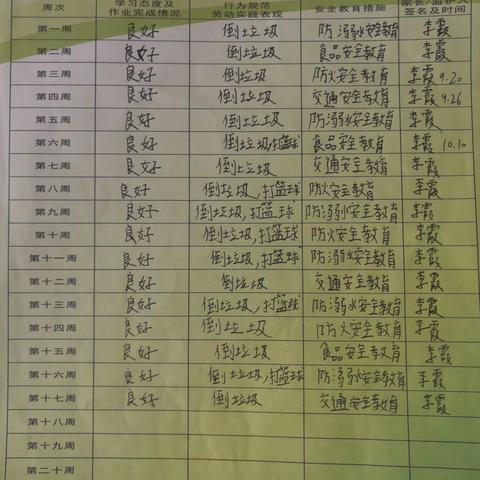 周次 学习态度及作业完成情况 行为规范劳动实践表现 安全教育措施 家长/监护人签名及时间
第一周 良好 倒垃圾 防溺水安全教育 李霞
第二周 良好 倒垃圾 食品安全教育 李霞
第三周 良好 倒垃圾 防火安全教育 李霞 9.20
第四周 良好 倒垃圾 交通安全教育 李霞 9.26
第五周 良好 倒垃圾 防溺水安全教育 李霞
第六周 良好 倒垃圾,打篮球 食品安全教育 李霞 10.10
第七周 良好 倒垃圾 交通安全教育 李霞
第八周 良好 倒垃圾,打篮球 防火安全教育 李霞
第九周 良好 倒垃圾,打篮球 防溺水安全教育 李霞
第十周 良好 倒垃圾,打篮球 防火安全教育 李霞
第十一周 良好 倒垃圾,打篮球 防溺水安全教育 李霞
第十二周 良好 倒垃圾 交通安全教育 李霞
第十三周 良好 倒垃圾,打篮球 防溺水安全教育 李霞
第十四周 良好 倒垃圾 防火安全教育 李霞
第十五周 良好 倒垃圾 食品安全教育 李霞
第十六周 良好 倒垃圾,打篮球 防溺水安全教育 李霞
第十七周 良好 倒垃圾 交通安全教育 李霞
第十八周
第十九周
第二十周